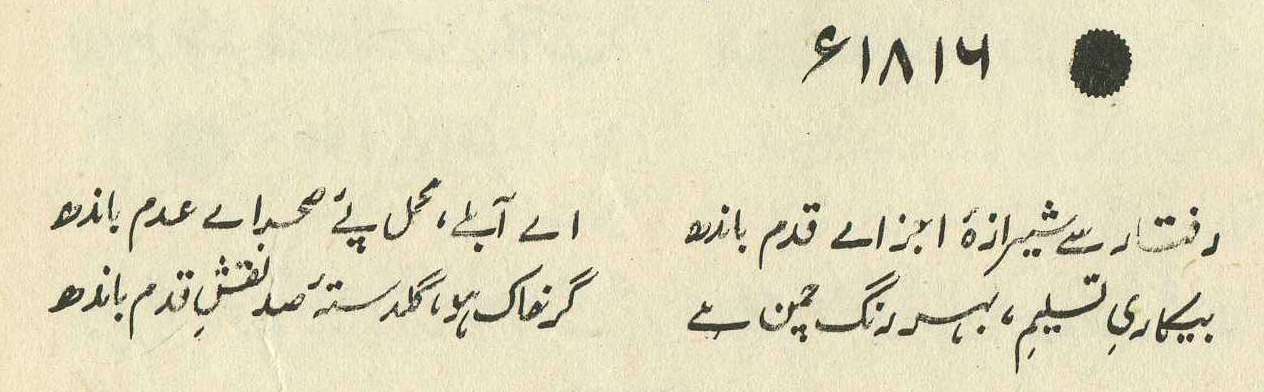 ۱۸۱۶ء
رفتار سے شیرازۂ اجزاے قدم باندھ اے آبلے، محمل پۓ صحراے عدم باندھ
بیکاریِ تسلیم، بہر رنگ چمن ہے گر خاک ہو، گلدستۂ صد نقشِ قدم باندھ